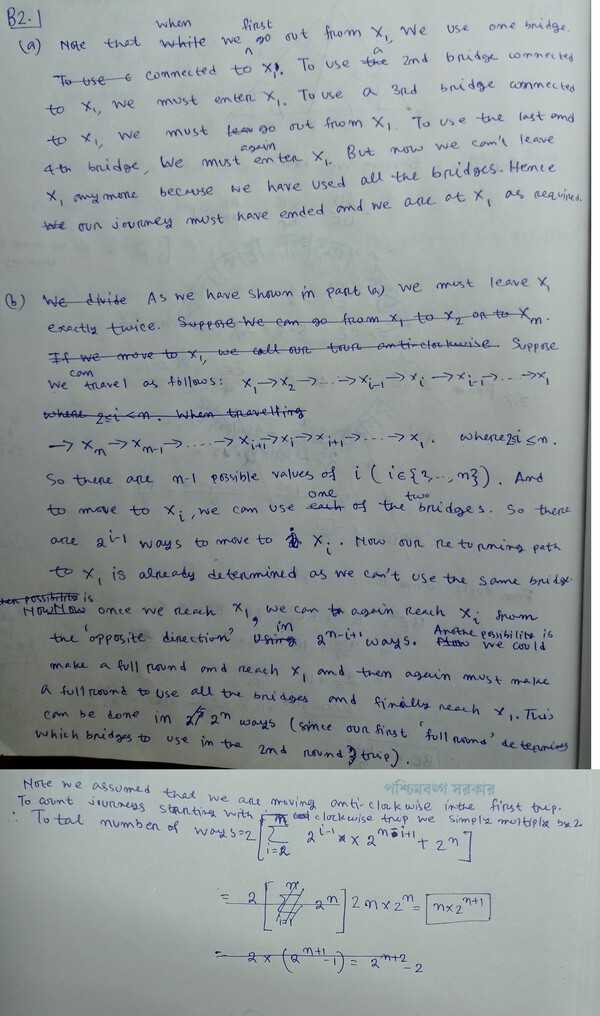 B2.
(a) Note that while we when first go out from X₁, we use one bridge.
To use connected to X₁. To use the a 2nd bridge connected
to X₁, we must enter X₁. To use a 3rd bridge connected
to X₁, we must go out from X₁. To use the last and
4th bridge, we must again enter X₁. But now we can't leave
X₁ anymore because we have used all the bridges. Hence
We our journey must have ended and we are at X₁ as required.
(b) We divide As we have shown in part (a) we must leave X₁
exactly twice. Suppose we can go from X₁ to X₂ or to Xm.
If we move to X₁, we call our tour anti-clockwise. Suppose
we can travel as follows: X₁→X₂→...→Xi-1→Xi→Xi-1→...→X₁
where 2≤i<n. When travelling
→ Xn→Xn-1→.....→Xi+1→Xi→Xi+1→.....→X₁. where 2≤i≤n.
So there are n-1 possible values of i (i∈{2,..,n}). And
to move to Xi, we can use each one of the two bridges. So there
are 2^(i-1) ways to move to Xi. Now our returning path
to X₁ is already determined as we can't use the same bridge.
possibility is
Now Now once we reach X₁, we can again reach Xi from
the 'opposite direction' using in 2^(n-i+1) ways. Another possibility is we could
make a full round and reach X₁ and then again must make
a full round to use all the bridges and finally reach X₁. This
can be done in 2^n ways (since our first 'full round' determines
which bridges to use in the 2nd round trip).
পশ্চিমবঙ্গ সরকার
Note we assumed that we are moving anti-clockwise in the first trip.
To count journeys starting with clockwise trip we simply multiply by 2
∴ Total number of ways = 2[∑ i=2 n 2^(i-1) × 2^(n-i+1) + 2^n]
= 2[∑ i=1 n 2^n] 2n×2^n = n×2^(n+1)
= 2×(2^(n+1)-1) = 2^(n+2)-2